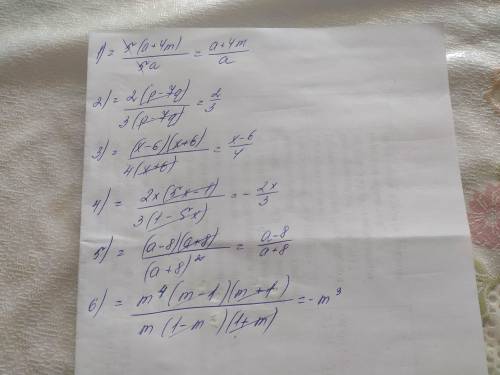 1) = 5(a+4m)/5a = a+4m/a
2) = 2(p-7q)/3(p-7q) = 2/3
3) = (x-6)(x+6)/4(x+6) = x-6/4
4) = 2x(5x-1)/3(1-5x) = -2x/3
5) = (a-8)(a+8)/(a+8)² = a-8/a+8
6) = m⁴(m-1)(m+1)/m(1-m)(1+m) = -m³